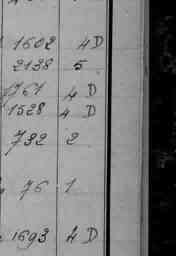 1602 4D
2138 5
1761 4D
1528 4D
732 2
76 1
1693 4D